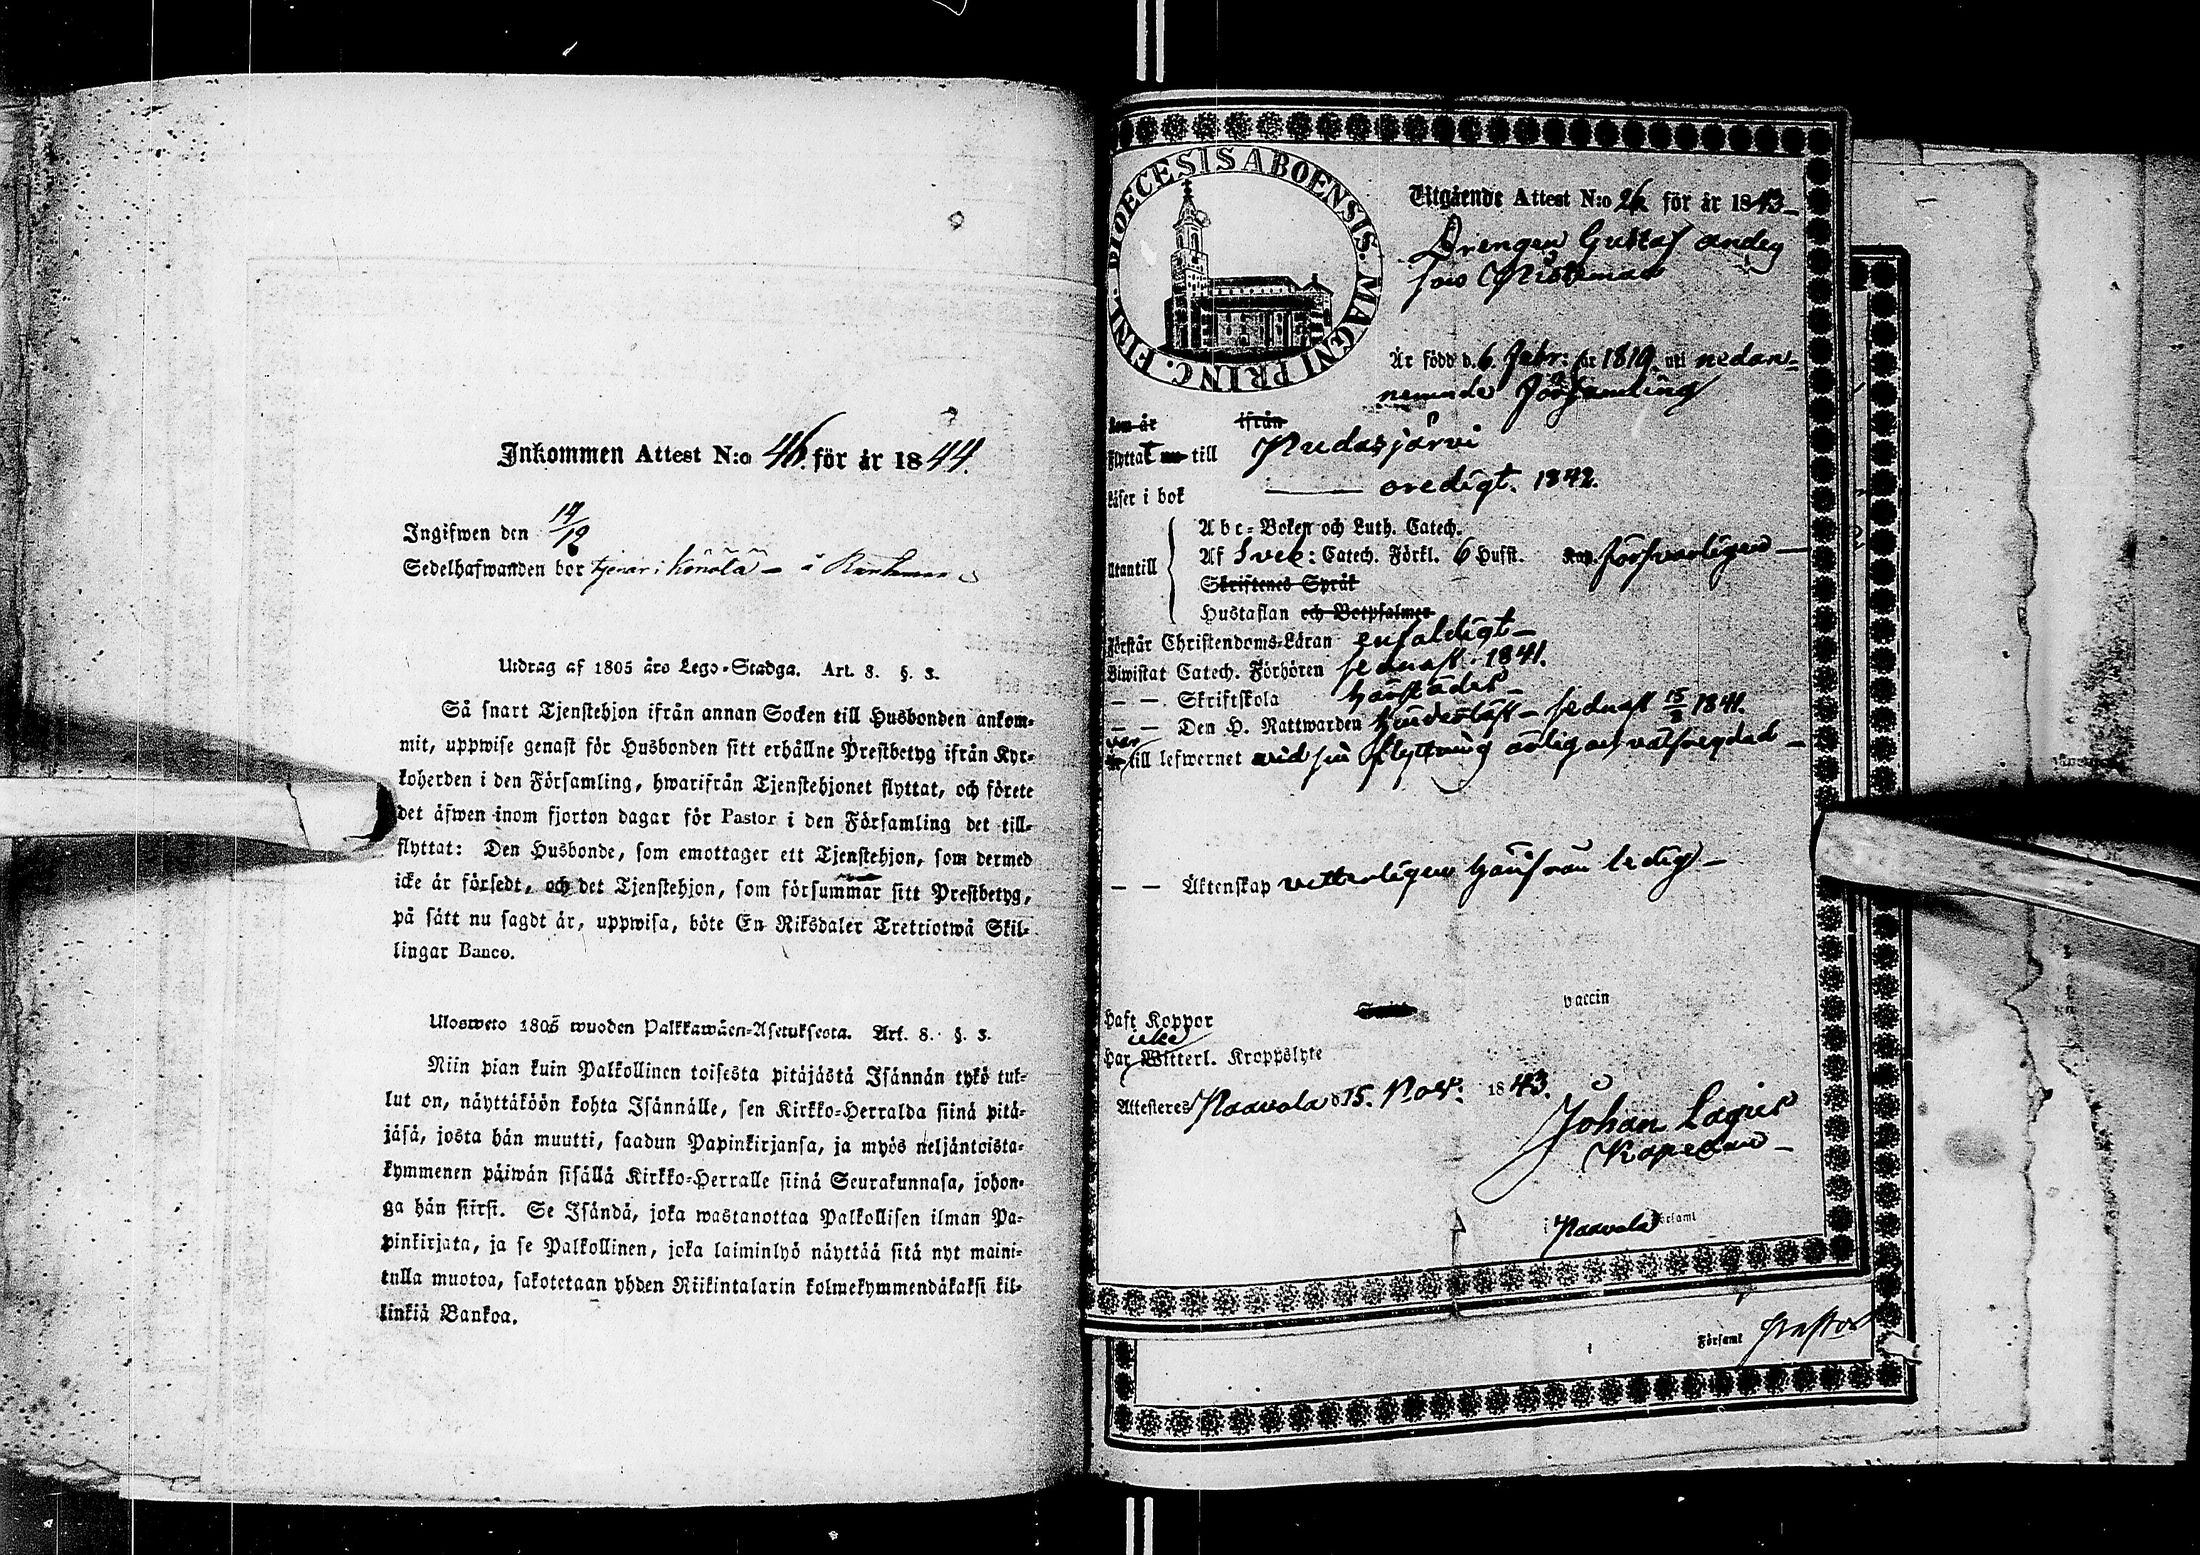 Inkommen Attest N:o 46. för år 1844.
Ingifwen den 14/12
Sedelhafwanden bor tjenar i Könölä - i
Utdrag af 1805 års Lego-Stadga. Art. 8. §. 3.
Så snart Tjenstehjon ifrån annan Socken till Husbonden ankom-
mit, uppwise genast för Husbonden sitt erhållne Prestbetyg ifrån Kyr-
koherden i den Församling, hwarifrån Tjenstehjonet flyttat, och förete
det äfwen inom fjorton dagar för Pastor i den Församling det till-
flyttat: Den Husbonde, som emottager ett Tjenstehjon, som dermed
icke är försedt, och det Tjenstehjon, som försummar sitt Prestbetyg,
på sätt nu sagdt är, uppwisa, böte En Riksdaler Trettiotwå Skil-
lingar Banco.
Ulosweto 1805 wuoden Palkkawäen-Asetuksesta. Art. 8. §. 3.
Niin pian kuin Palkollinen toisesta pitäjästä Isännän tykö tul-
lut on, näyttäköön kohta Isännälle, sen Kirkko-Herralda siinä pitä-
jäsä, josta hän muutti, saadun Papinkirjansa, ja myös neljäntoista-
kymmenen päiwän sisällä Kirkko-Herralle siinä Seurakunnasa, johon-
ga hän siirsi. Se Isändä, joka wastanottaa Palkollisen ilman Pa-
pinkirjata, ja se Palkollinen, joka laiminlyö näyttää sitä nyt maini-
tulla muotoa, sakotetaan yhden Riikintalarin kolmekymmendäkaksi kil-
linkiä Bankoa.
DIOECESIS ABOENSIS. MAGNI PRINC. FINL.
Utgående Attest N:o 26 för år 1843-
Drengen Gustaf anders
son
Är född d. 6 Febr: år 1819. uti nedan-
nemnde Församling
kom år ifrån
Flyttat nu till Pudasjärvi
Läser i bok oredigt. 1842.
Utantill
Abc-Boken och Luth. Catech.
Af Sveb: Catech. Förkl. 6 Hufst. försvarligen
Skriftenes Språk
Hustaflan och Botpsalmer
Förstår Christendoms-Läran enfaldigt-
Biwistat Catech. Förhören sednast 1841.
- - Skriftskola härstädes-
- - Den H. Nattwarden sednast 15/8 1841.
var
är till lefwernet vid sin flyttning ärlig och välfregdad -
- - Äktenskap vetterligen härifrån ledig -
Haft Koppor vaccin
icke
Har Witterl. Kroppslyte
Attesteres Paavola d 15. Nov. 1843.
Johan Lagus
Kapellan -
i Paavola Församl
Församl Pastor